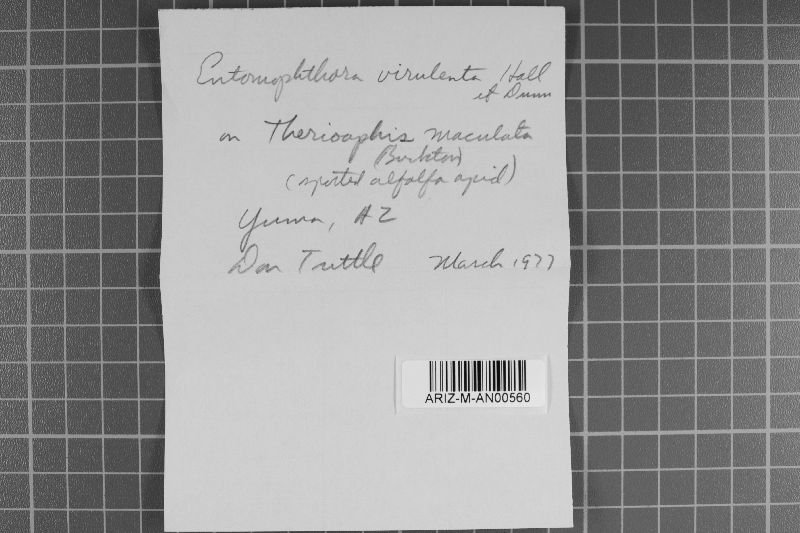 Entomophthora virulenta Hall
et Dunn
on Therioaphis maculata
(Buckton)
(spotted alfalfa apid)
Yuma, AZ
Don Tuttle March 1977
ARIZ-M-AN00560